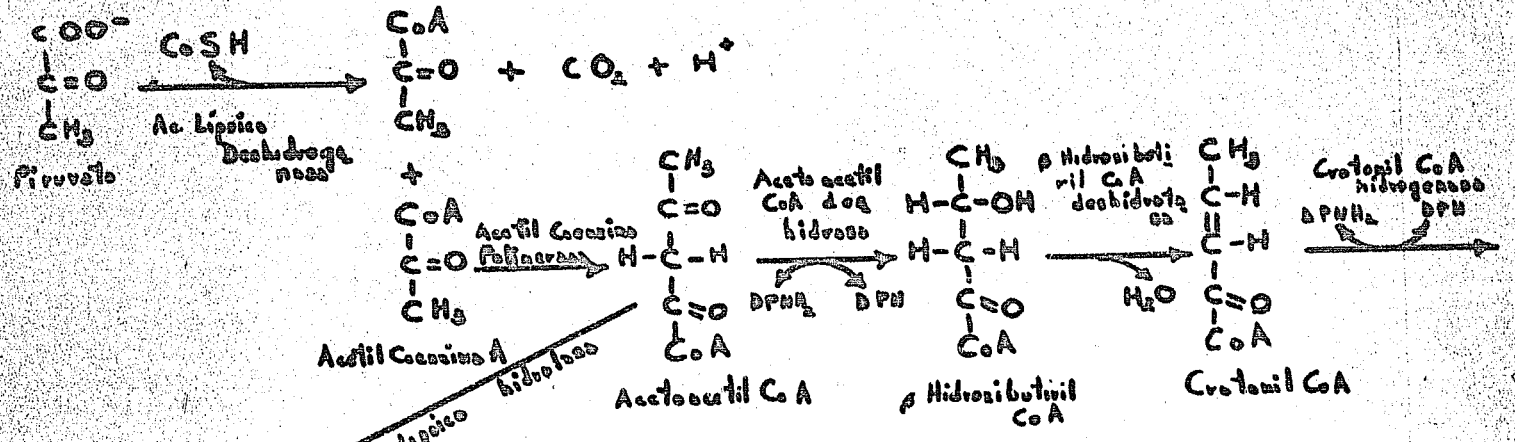 COO⁻
C=O
CH₃
Piruvato
CoSH
Ac Lipoico
Deshidroga
nasa
CoA
C=O
CH₃
+ CO₂ + H⁺
+
CoA
C=O
CH₃
Acetil Coenzima A
Acetil Coenzima
Polimerasa
CH₃
C=O
H-C-H
C=O
CoA
Acetoacetil CoA
hidrolasa
Aceto acetil
CoA des
hidrasa
DPNH₂
DPN
CH₃
H-C-OH
H-C-H
C=O
CoA
β Hidroxibutiril
CoA
β Hidroxibuti
ril CoA
deshidrata
sa
H₂O
CH₃
C-H
C-H
C=O
CoA
Crotonil CoA
Crotonil CoA
hidrogenasa
DPNH₂
DPN